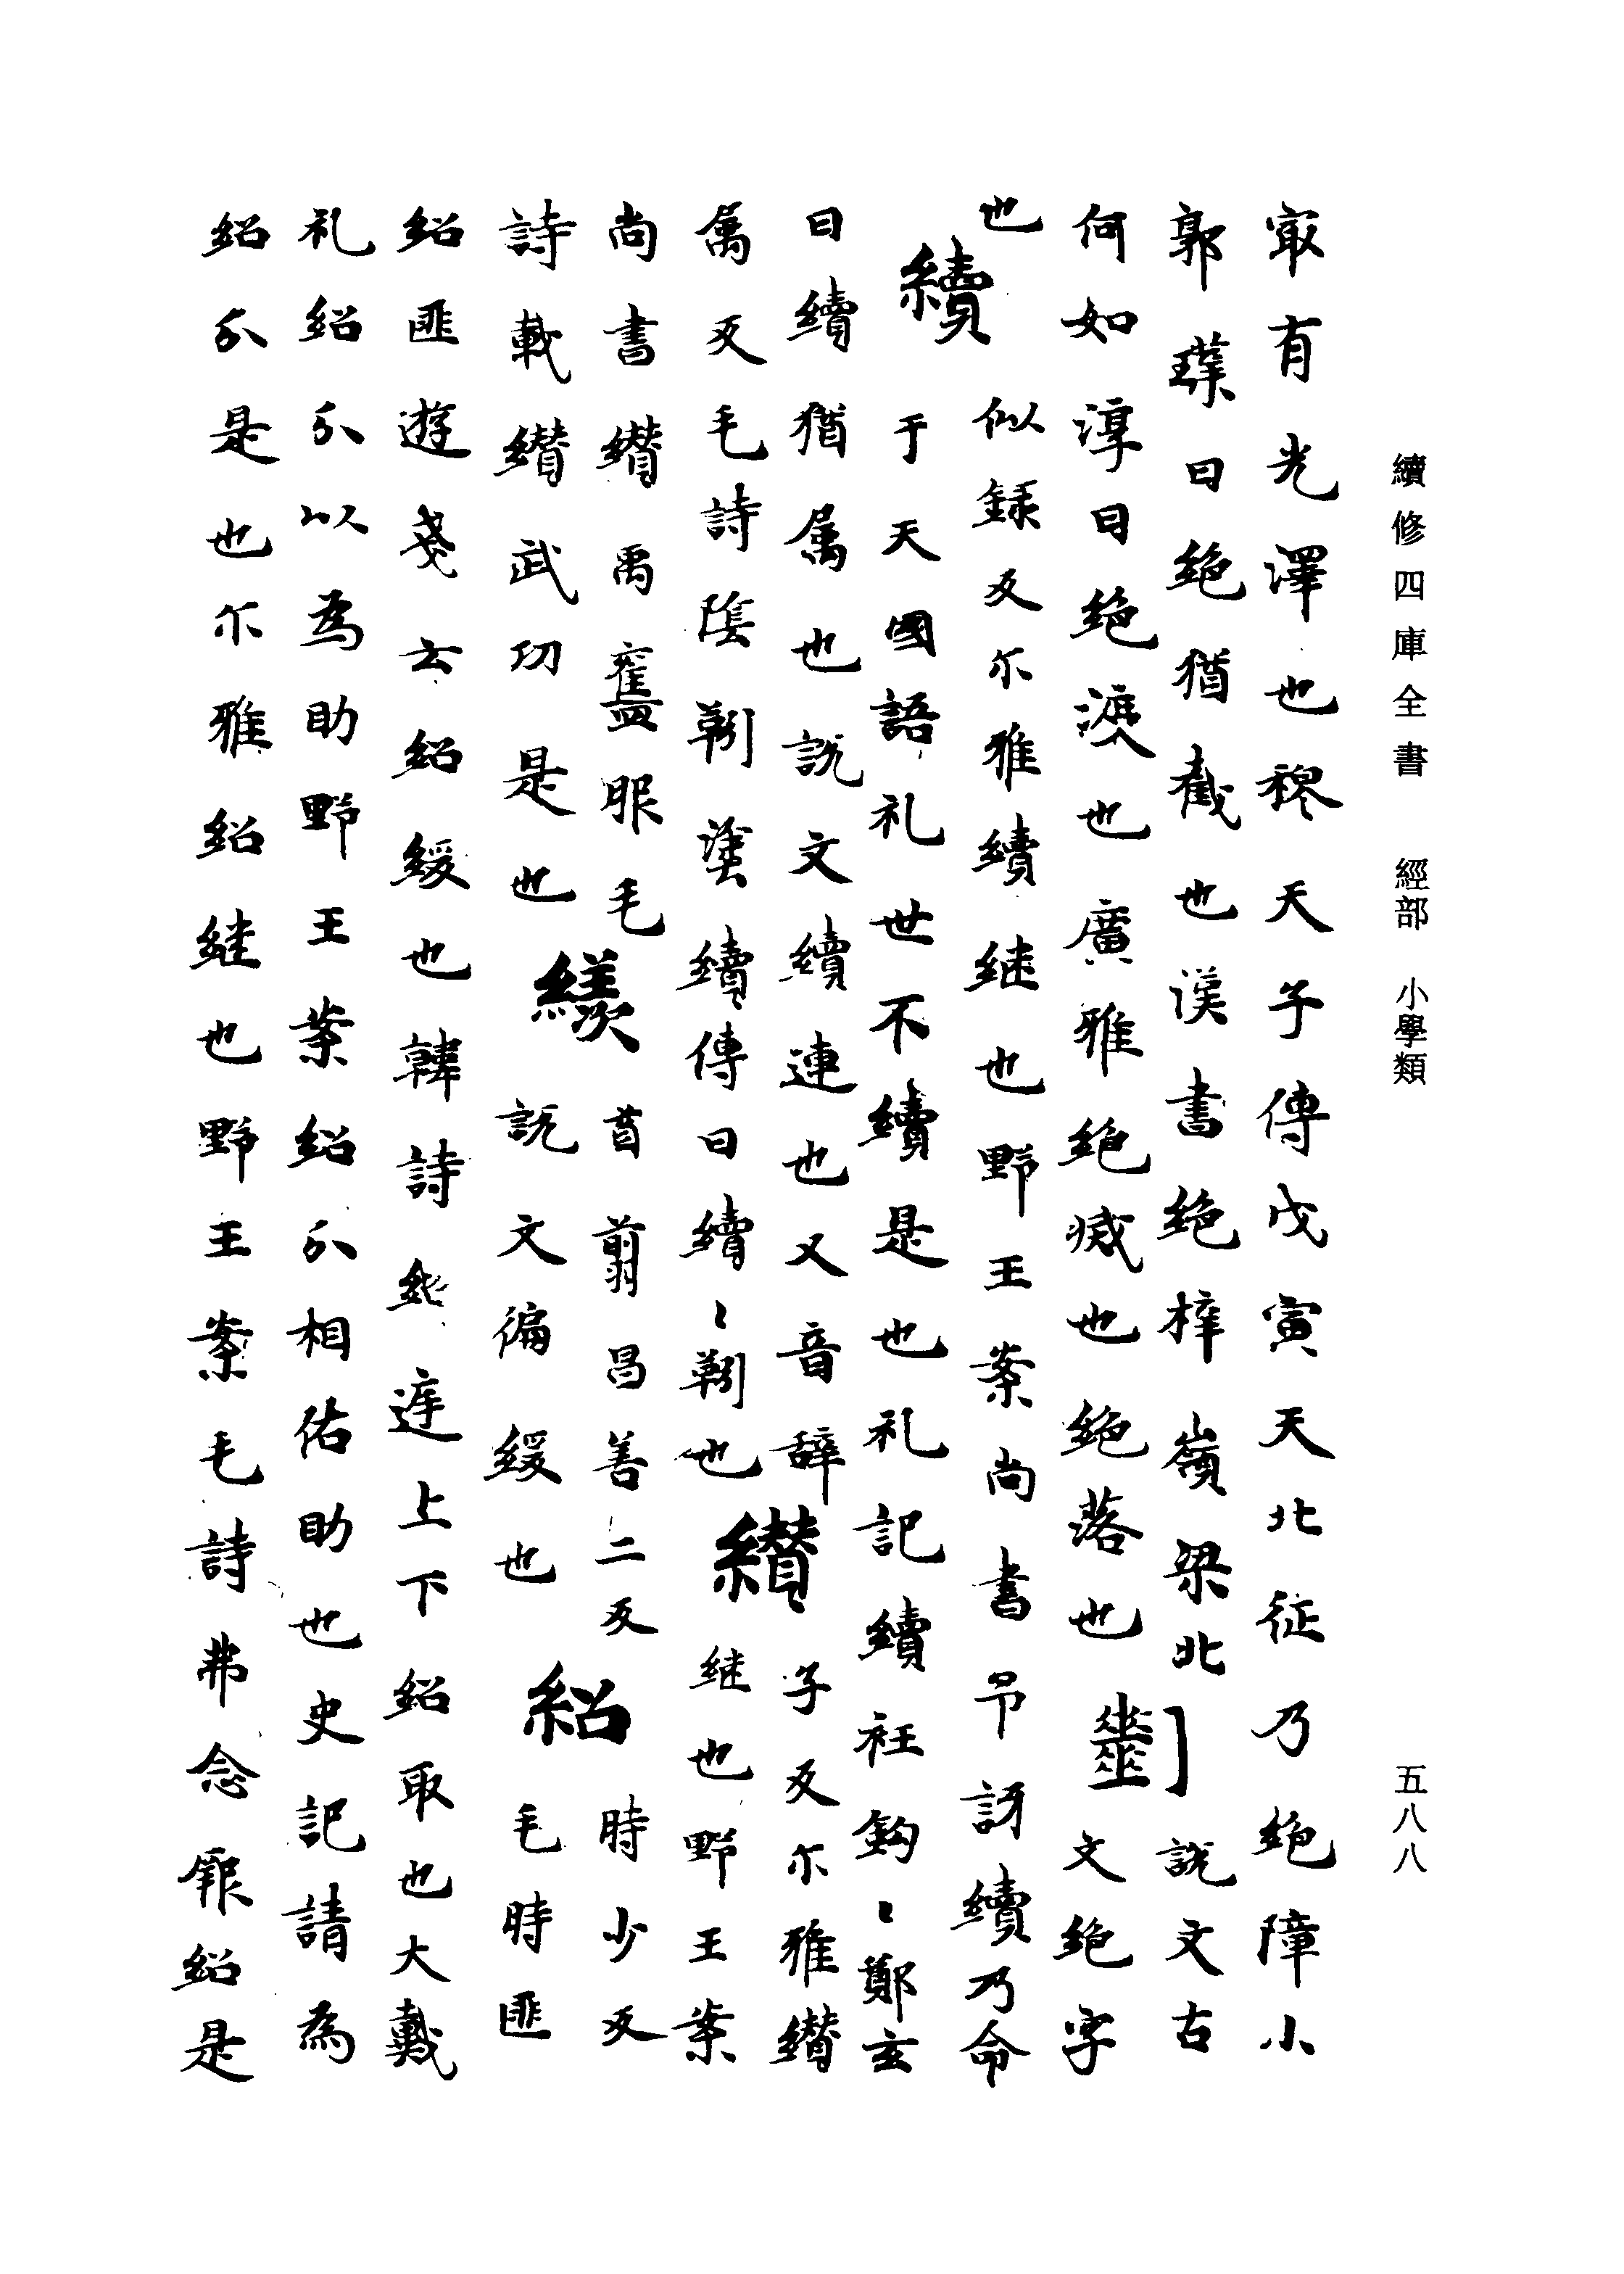 續修四庫全書 經部 小學類 五八八
冣有光澤也穆天子傳戊寅天北征乃絶障小
郭璞曰絶猶截也漢書絶梓嶺梁北𠄌說文古
何如淳曰絶渡也廣雅絶烕也絶落也𢇍文絶字
也 似録反尓雅續継也野王案尚書予訝續乃命
續于天國語礼世不續是也礼記續衽鈎〻鄭玄
曰續猶属也說文續連也又音辭 子反尓雅纉
属反毛詩隂靷塗續傳曰續〻靷也纉継也野王案
尚書纉禹舊服毛 酋翦昌善二反 時少反
詩載纉武功是也繎說文徧緩也紹毛時匪
紹匪遊戔云紹緩也韓詩 遟上下紹取也大戴
礼紹尒以為助野王案紹尒相佑助也史記請為
紹尒是也尓雅紹継也野王案毛詩弗念厥紹是